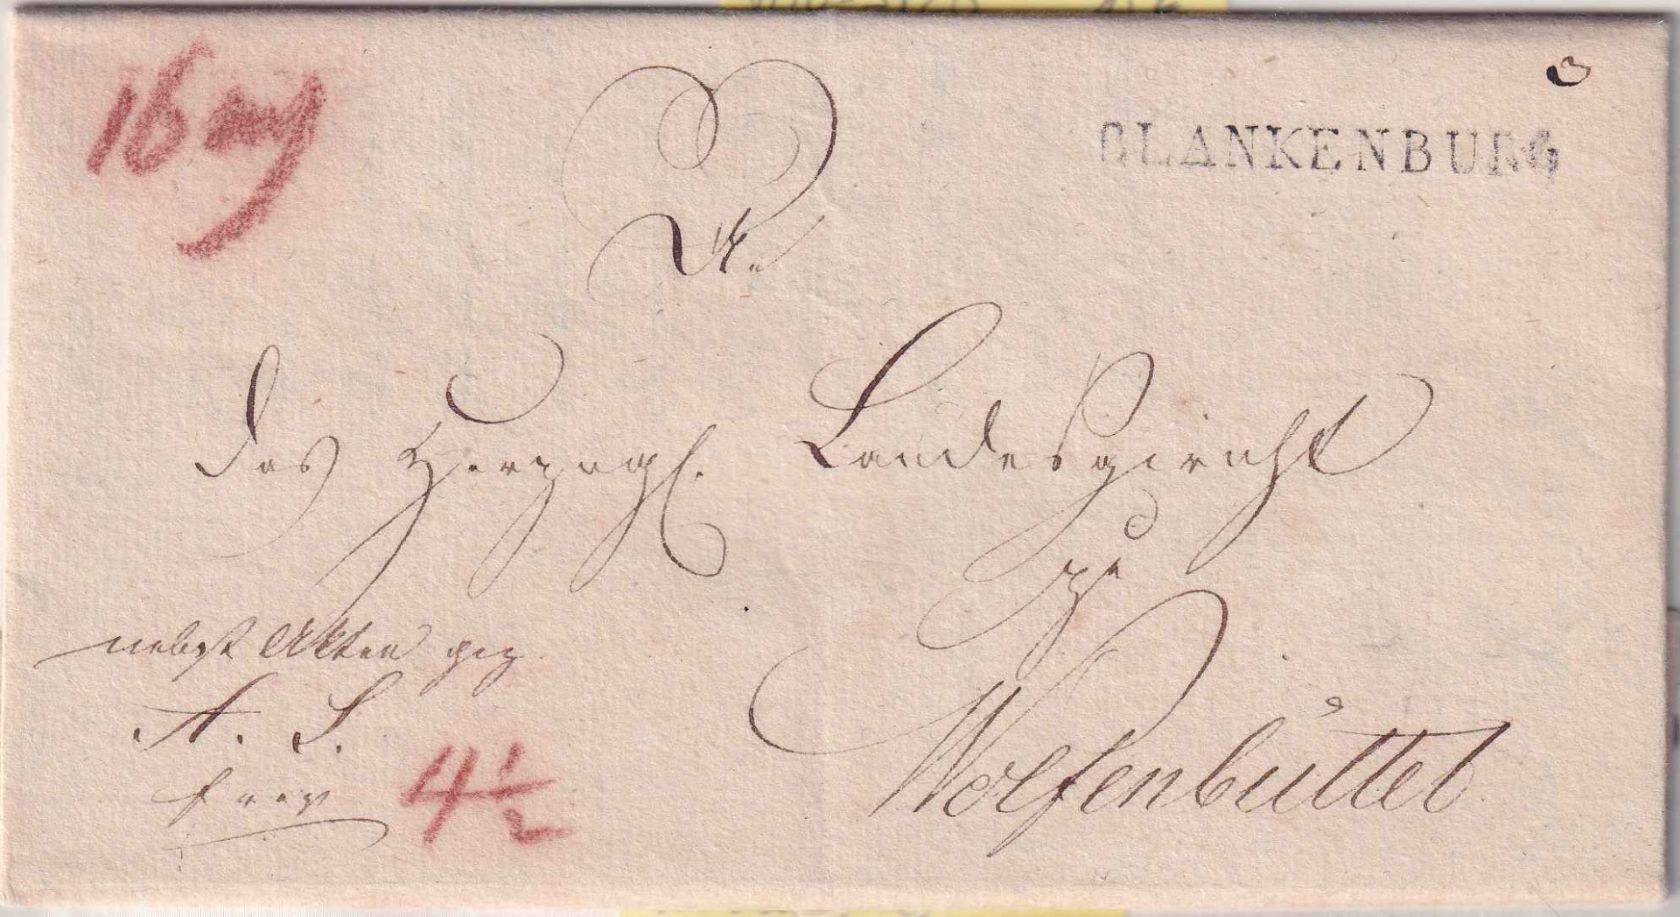 16
BLANKENBURG
An
das Herzogl. Landesgericht
zu
Wolfenbüttel
nebst Akten
A. S.
frey
4 1/2